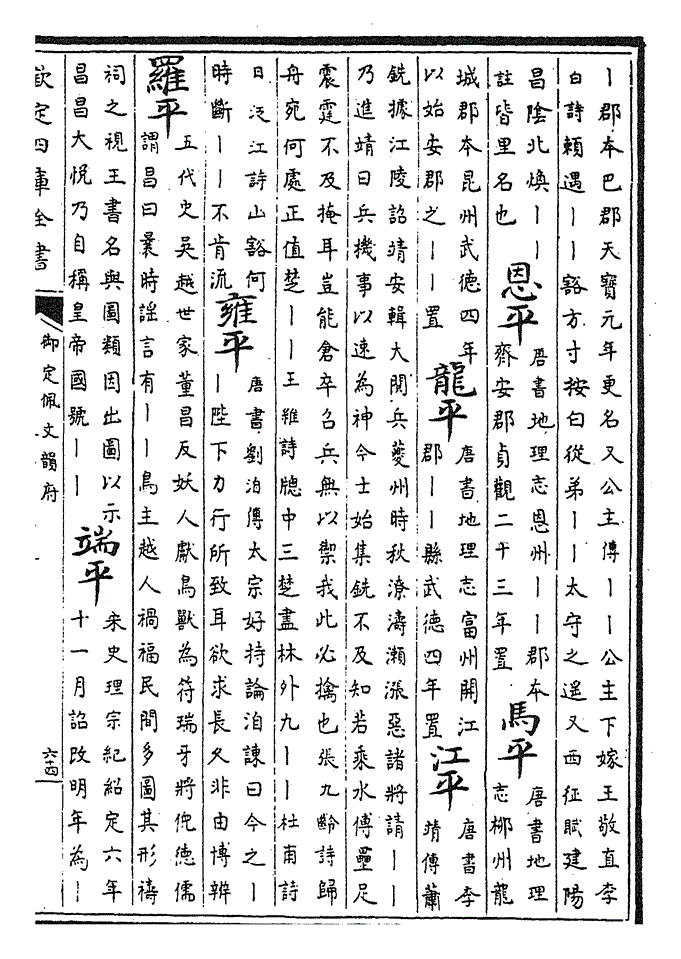 丨郡本巴郡天寳元年更名又公主傳丨丨公主下嫁王敬直李
白詩賴遇丨丨豁方寸按白從弟丨丨太守之遥又西征賦建陽
昌陰北煥丨丨
註皆里名也
恩平
唐書地理志恩州丨丨郡本
齊安郡貞觀二十三年置
馬平
唐書地理
志柳州龍
城郡本昆州武德四年
以始安郡之丨丨置
龍平
唐書地理志富州開江
郡丨丨縣武德四年置
江平
唐書李
靖傳蕭
銑據江陵詔靖安輯大閱兵夔州時秋潦濤瀨漲惡諸將請丨丨
乃進靖曰兵機事以速為神今士始集銑不及知若乘水傅壘足
震霆不及掩耳豈能倉卒召兵無以禦我此必擒也張九齡詩歸
舟宛何處正值楚丨丨王維詩牕中三楚盡林外九丨丨杜甫詩
日泛江詩山谿何
時斷丨丨不肯流
雍平
唐書劉洎傳太宗好持論洎諫曰今之丨
丨陛下力行所致耳欲求長久非由博辨
羅平
五代史吳越世家董昌反妖人獻鳥獸為符瑞牙將倪德儒
謂昌曰曩時謡言有丨丨鳥主越人禍福民間多圖其形禱
祠之視王書名與圖類因出圖以示
昌昌大悦乃自稱皇帝國號丨丨
端平
宋史理宗紀紹定六年
十一月詔改明年為丨
欽定四庫全書
御定佩文韻府
六十四